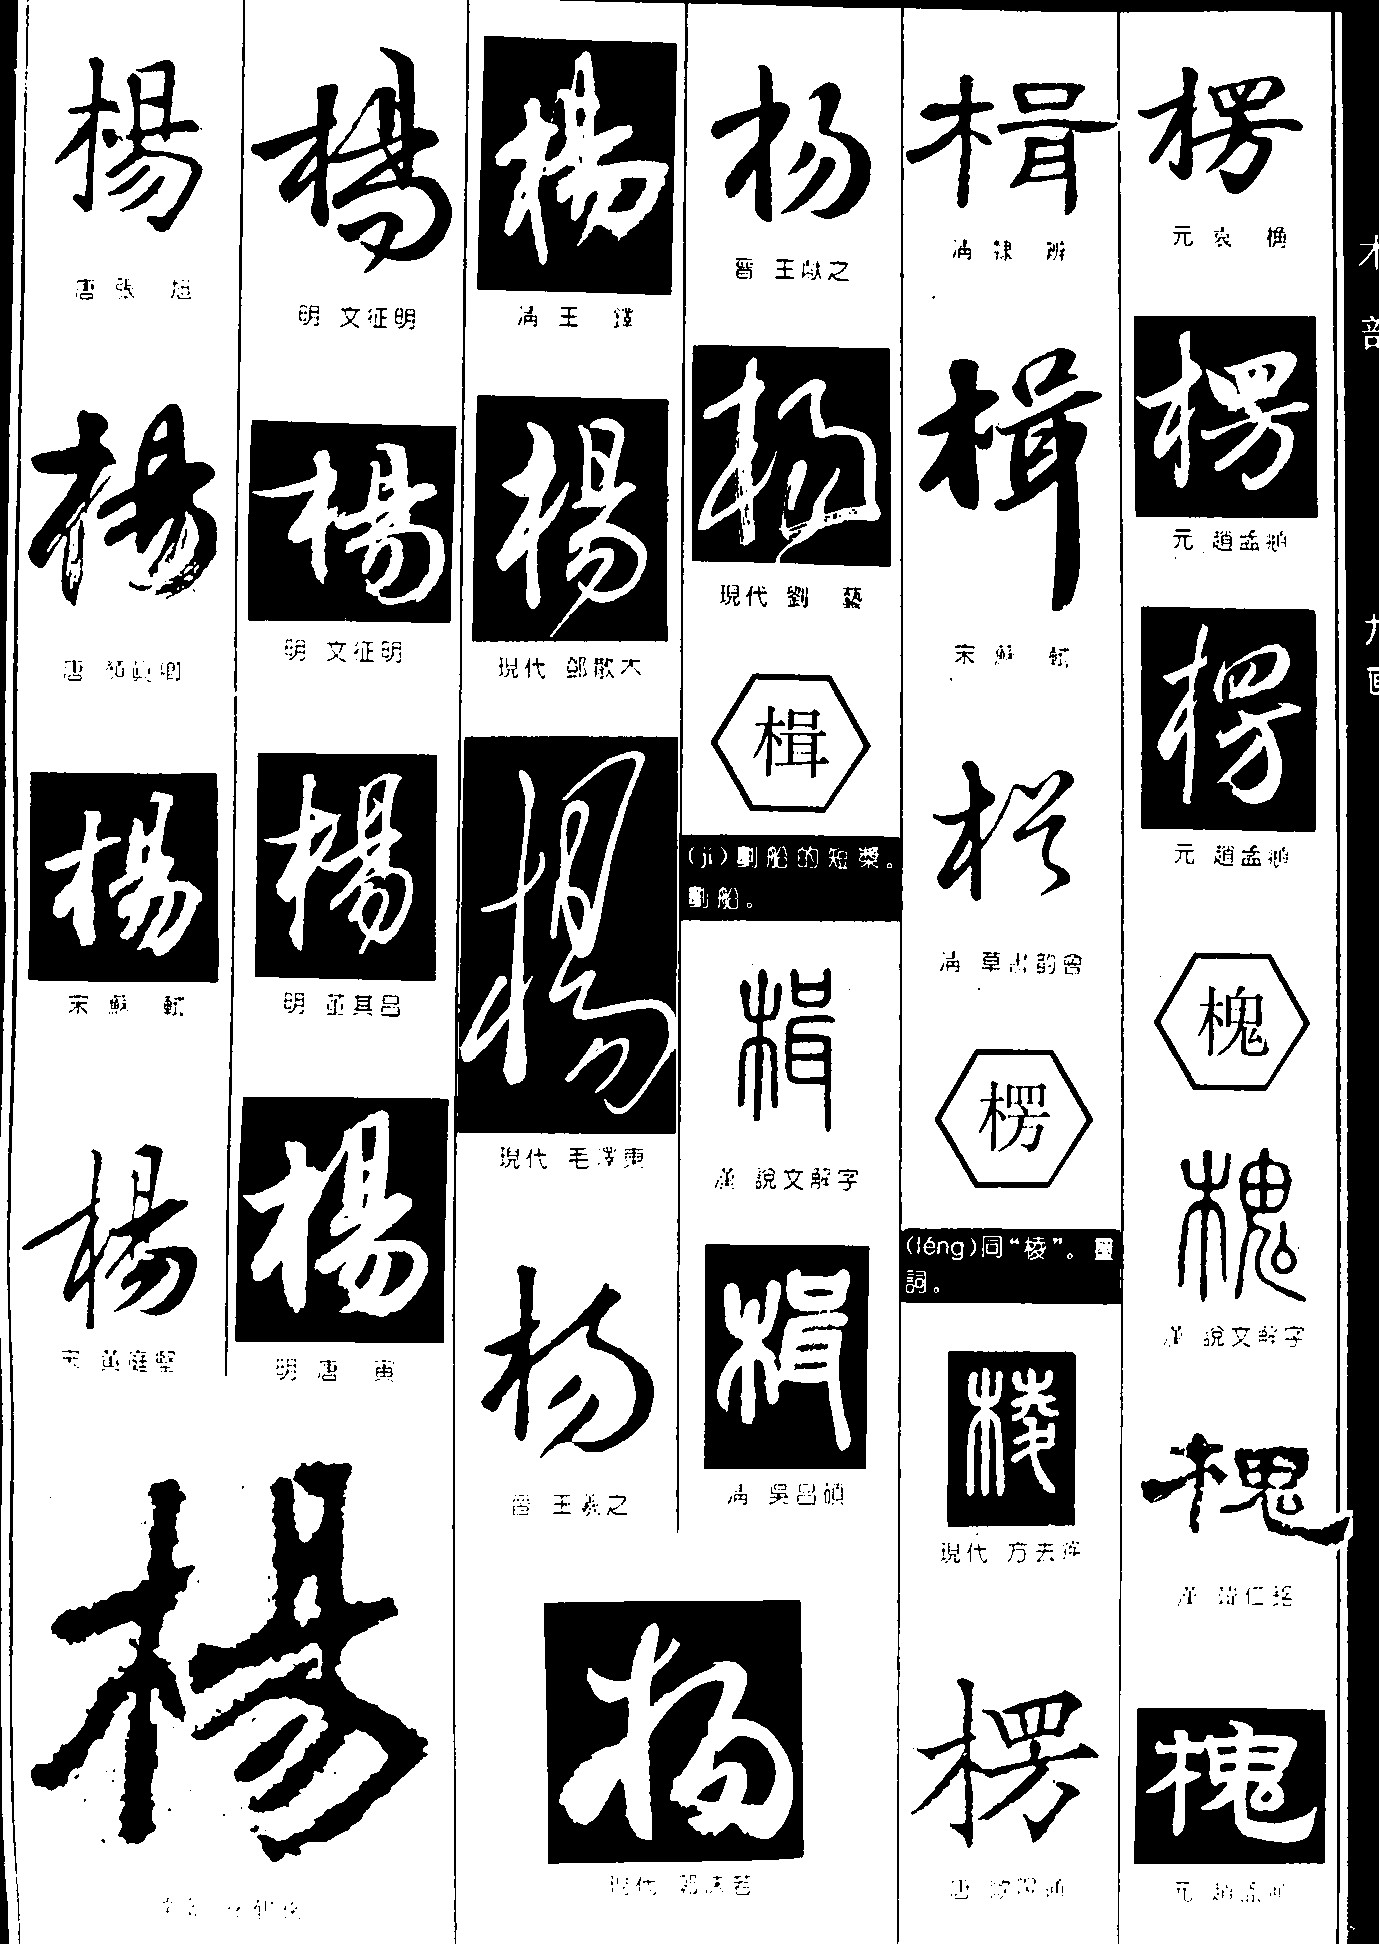 楊
唐 張 旭
楊
唐 顏真卿
楊
宋 蘇 軾
楊
宋 黃庭堅
楊
楊
明 文征明
楊
明 文征明
楊
明 董其昌
楊
明 唐 寅
楊
清 王 鐸
楊
現代 鄧散木
楊
現代 毛澤東
杨
晉 王羲之
杨
現代 郭沫若
杨
晉 王獻之
杨
現代 劉 藝
楫
(jí)劃船的短槳。
劃船。
楫
漢 說文解字
楫
清 吳昌碩
楫
清 隸辨
楫
宋 蘇 軾
楫
清 草書韵會
楞
(léng)同“棱”。量
詞。
棱
現代 方去疾
楞
唐 歐陽通
楞
元 袁 桷
楞
元 趙孟頫
楞
元 趙孟頫
槐
槐
漢 說文解字
槐
漢 韓仁銘
槐
元 趙孟頫
木
部
九
画